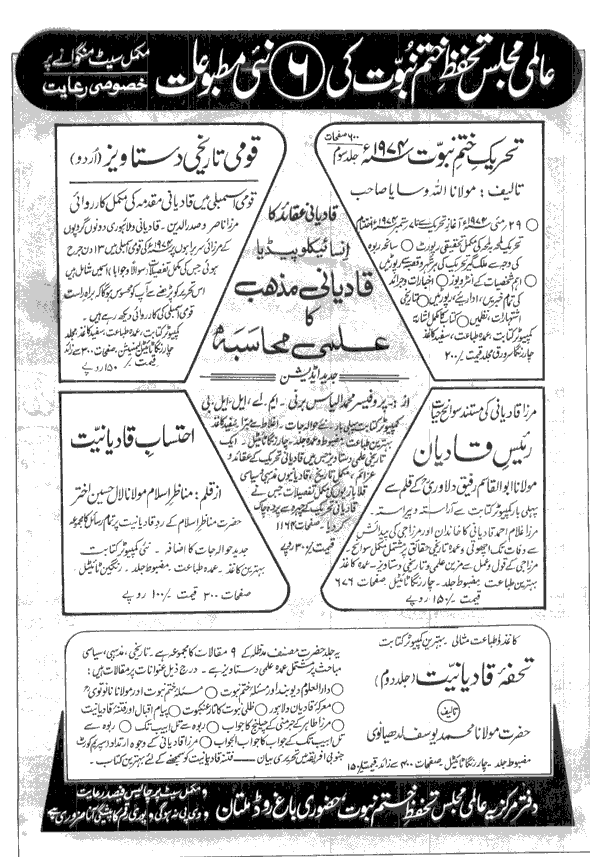 عالمی مجلس تحفظ ختم نبوت کی ۶ نئی مطبوعات
مکمل سیٹ منگوانے پر
خصوصی رعایت
تحریک ختم نبوت ۱۹۷۴ء جلد سوم
۶۰۰ صفحات
تالیف: مولانا اللہ وسایا صاحب
۲۹ مئی ۱۹۷۴ء آغاز تحریک سے ۷ ستمبر ۱۹۷۴ء اختتام
تحریک لمحہ بہ لمحہ کی مکمل تحقیقی رپورٹ ○ سانحہ ربوہ
کی وجہ سے ملک گیر تحریک کی ہر شہر و قصبہ سے رپورٹیں
○ اہم شخصیات کے انٹرویوز ○ اخبارات و جرائد
کی تمام خبریں، اداریے، رپورٹیں ○ تاریخی
اشتہارات، نظمیں ○ کتاب کا مکمل اشاریہ
کمپیوٹر کتابت، عمدہ طباعت، سفید کاغذ
چار رنگا سرورق مجلد قیمت /۲۰۰
قومی تاریخی دستاویز (اردو)
قومی اسمبلی میں قادیانی مقدمہ کی مکمل کارروائی
مرزا ناصر و صدر الدین۔ قادیانی و لاہوری دونوں گروپوں
کے مرزائی سربراہوں پر ۱۹۷۴ء کی قومی اسمبلی میں ۱۳ دن جرح
ہوئی جس کی مکمل تفصیلات سوالاً و جواباً اس میں شامل ہیں
اس تحریر کو پڑھنے سے آپ کو محسوس ہوگا کہ براہ راست
قومی اسمبلی کی کارروائی دیکھ رہے ہیں۔
کمپیوٹر کتابت، عمدہ طباعت، سفید کاغذ، مجلد
چار رنگا ٹائٹل صفحات ۳۰۰ سے زائد
قیمت /۱۵۰ روپے
قادیانی عقائد کا
انسائیکلوپیڈیا
قادیانی مذہب
کا
علمی محاسبہ
جدید ایڈیشن
از: پروفیسر محمد الیاس برنی۔ ایم۔ اے، ایل ایل بی
کمپیوٹر کتابت پہلی بار نئے حوالہ جات۔ اغلاط سے مبرا، سفید کاغذ
بہترین طباعت مضبوط و عمدہ جلد۔ چار رنگا ٹائٹل۔ ایک
تاریخی علمی دستاویز جس میں قادیانی تحریک کے عقائد و
عزائم، مکمل تاریخ، قادیانیوں مذہبی و سیاسی
قلابازیوں کی مکمل تفصیلات جس نے
قادیانی تحریک کے چہرہ سے پردہ چاک
کر دیا۔ صفحات ۱۱۶۴
قیمت /۳۰۰ روپے
مرزا قادیانی کی مستند سوانح حیات
رئیس قادیان
مولانا ابوالقاسم رفیق دلاوری کے قلم سے
پہلی بار کمپیوٹر کتابت سے آراستہ و پیراستہ۔
مرزا غلام احمد قادیانی کا خاندان اور مرزا جی کی پیدائش
سے وفات تک اچھوتی و عمدہ تاریخی حقائق پر مشتمل مکمل سوانح۔
مرزا جی کے قول و عمل سے مزین علمی و تاریخی دستاویز۔ عمدہ کاغذ
بہترین طباعت۔ مضبوط جلد۔ چار رنگا ٹائٹل صفحات ۶۷۶
قیمت /۱۵۰ روپے
احتساب قادیانیت
از قلم: مناظر اسلام مولانا لال حسین اختر
حضرت مناظر اسلام کے رد قادیانیت پر تمام رسائل کا مجموعہ
جدید حوالہ جات کا اضافہ۔ نئی کمپیوٹر کتابت
بہترین کاغذ۔ عمدہ طباعت۔ مضبوط جلد۔ رنگین ٹائیٹل
صفحات ۲۰۰ قیمت /۱۰۰ روپے
کاغذ و طباعت مثالی۔ بہترین کمپیوٹر کتابت
تحفۂ قادیانیت (جلد دوم)
تالیف
حضرت مولانا محمد یوسف لدھیانوی
مضبوط جلد۔ چار رنگا ٹائیٹل۔ صفحات ۴۰۰ سے زائد قیمت /۱۵۰
یہ جلد حضرت مصنف مدظلہ کے ۹ مقالات کا مجموعہ ہے۔ تاریخی، مذہبی، سیاسی
مباحث پر مشتمل عمدہ علمی دستاویز ہے۔ درج ذیل عنوانات پر مقالات ہیں:
○ دارالعلوم دیوبند اور مسئلہ ختم نبوت ○ مسئلہ ختم نبوت اور مولانا نانوتوی
○ معرکہ قادیان و لاہور ○ ظلی نبوت کا تار عنکبوت ○ پیام اقبال اور فتنہ قادیانیت
○ مرزا طاہر کے جرمنی کے چیلنج کا جواب ○ ربوہ سے تل ابیب تک ○ ربوہ سے
تل ابیب تک کے جواب کا جواب الجواب ○ مرزا قادیانی کے وجوہ ارتداد سپریم کورٹ
جنوبی افریقہ میں تحریری بیان — فتنہ قادیانیت کو سمجھنے کے لئے بہترین کتاب۔
دفتر مرکزیہ عالمی مجلس تحفظ ختم نبوت، حضوری باغ روڈ ملتان
مکمل سیٹ پر چالیس فیصد رعایت
وی پی نہ ہوگی ○ پوری رقم کا پیشگی آنا ضروری ہے